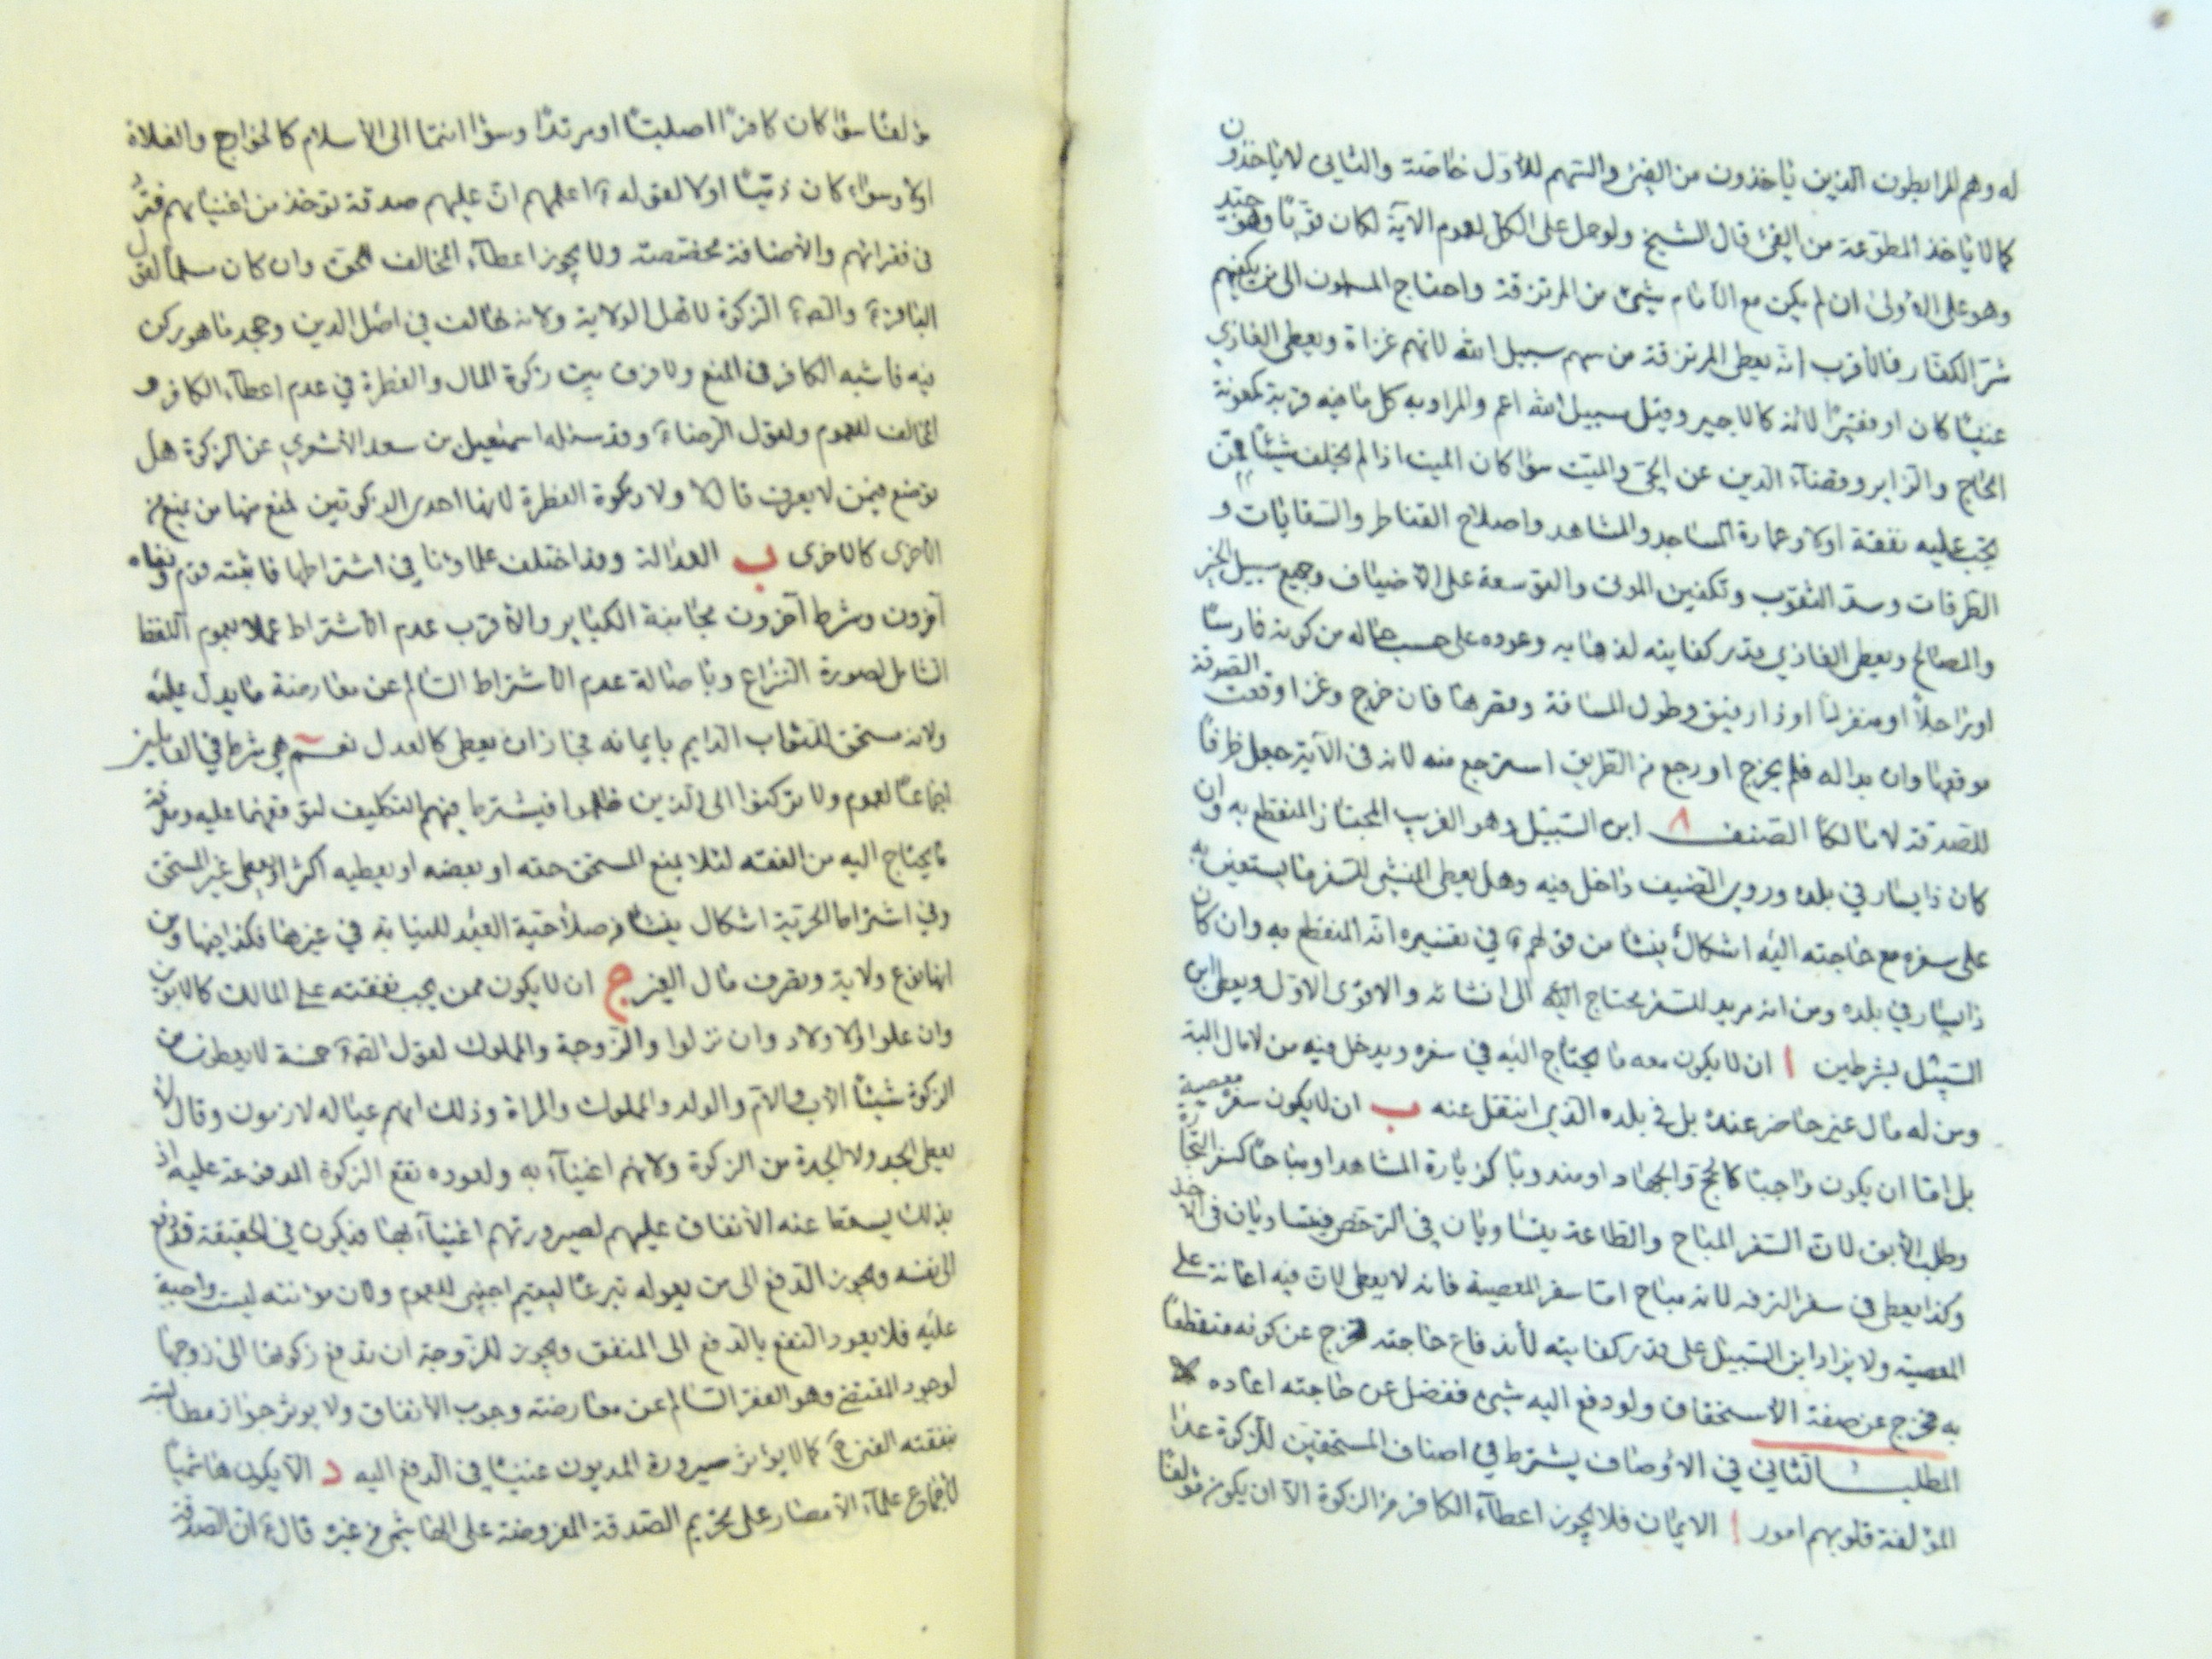 له وهم المرابطون الذين ياخذون من الفيئ والسهم للاول خاصة والثاني لا ياخذون
كما لا ياخذ المطوعة من الفيئ قال الشيخ ولو حمل على الكل لعموم الاية لكان قويا وهو جيد
وهو على الاولى ان لم يكن مع الامام شيئ من المرتزقة واحتاج المسلمون الى من يكفيهم
شر الكفار فالاقرب انه يعطى المرتزقة من سهم سبيل الله لانهم غزاة ويعطى الغازي
غنيا كان او فقيرا لانه كالاجير وقيل سبيل الله اعم والمراد به كل ما فيه قربة كمعونة
الحاج والزاير وقضاء الدين عن الحي والميت سواء كان الميت اذا لم يخلف شيئا ممن
يجب عليه نفقته اولا وعمارة المساجد والمشاهد واصلاح القناطر والسقايات و
الطرقات وسد الثقوب وتكفين الموتى والتوسعة على الاضياف وجميع سبيل الخير
والمصالح ويعطى الغازي قدر كفايته لذهابه وعوده على حسب حاله من كونه فارسا
او راجلا او منفردا او ذا رفيق وطول المسافة وقصرها فان خرج وغزا وقعت الصدقة
موقعها وان بدا له فلم يخرج او رجع من الطريق استرجع منه لانه في الآية جعل ظرفا
للصدقة لا مالكا الصنف ٨ ابن السبيل وهو الغريب المجتاز المنقطع به وان
كان ذا يسار في بلده وروي الضيف داخل فيه وهل يعطى المنشي للسفر ما يستعين به
على سفره مع حاجته اليه اشكال ينشا من قولهم في تفسيره انه المنقطع به وان كان
ذا يسار في بلده ومن انه مريد للسفر محتاج اليه الى انشائه والاقوى الاول ويعطى ابن
السبيل بشرطين ا ان لا يكون معه ما يحتاج اليه في سفره ويدخل فيه من لا مال البتة
ومن له مال غير حاضر عنده بل في بلده الذي انتقل عنه ب ان لا يكون سفره معصية
بل اما ان يكون واجبا كالحج والجهاد او مندوبا كزيارة المشاهد او مباحا كسفر التجارة
وطلب الآبق لان السفر المباح والطاعة يتساويان في الترخص فيتساويان في الاخذ
وكذا يعطى في سفر النزهة لانه مباح اما سفر المعصية فانه لا يعطى لان فيه اعانة على
المعصية ولا يزاد ابن السبيل على قدر كفايته لاندفاع حاجته فخرج عن كونه منقطعا
به فخرج عن صفة الاستحقاق ولو دفع اليه شيئ ففضل عن حاجته اعاده
المطلب الثاني في الاوصاف يشترط في اصناف المستحقين للزكوة عدا
المؤلفة قلوبهم امور ا الايمان فلا يجوز اعطاء الكافر من الزكوة الا ان يكون مؤلفا
مؤلفا سواء كان كافرا اصليا او مرتدا وسواء انتما الى الاسلام كالخوارج والغلاة
اولا وسواء كان ذميا اولا لقوله اعلمهم ان عليهم صدقة تؤخذ من اغنيائهم فترد
في فقرائهم والاضافة مختصة ولا يجوز اعطاء المخالف للحق وان كان مسلما لقول
الباقر والصادق الزكوة لاهل الولاية ولانه خالف في اصل الدين وجحد ما هو ركن
فيه فاشبه الكافر في المنع ولا فرق بين زكوة المال والفطرة في عدم اعطاء الكافر و
المخالف للعموم ولقول الرضا وقد سئله اسمعيل بن سعد الاشعري عن الزكوة هل
توضع فيمن لا يعرف قال لا ولا زكوة الفطرة لانها احدى الزكوتين لمنع منها من يمنع من
الاخرى كالاخرى ب العدالة وقد اختلف علماؤنا في اشتراطها فاثبته قوم ونفاه
آخرون وشرط آخرون مجانبة الكباير والاقرب عدم الاشتراط عملا بعموم اللفظ
الشامل لصورة النزاع وباصالة عدم الاشتراط السالم عن معارضة ما يدل عليه
ولانه مستحق للثواب الدايم بايمانه فجاز ان يعطى كالعدل نعم هي شرط في العاملين
اجماعا لعموم ولا تركنوا الى الذين ظلموا فيشترط فيهم التكليف لتوقفهما عليه ومعرفة
ما يحتاج اليه من الفقه لئلا يمنع المستحق حقه او بعضه او يعطيه اكثر او يعطى غير المستحق
وفي اشتراط الحرية اشكال ينشا من صلاحية العبد للنيابة في غيرها فكذا فيها ومن
انها نوع ولاية وتصرف مال الغير ج ان لا يكون ممن يجب نفقته على المالك كالابوين
وان علوا والاولاد وان نزلوا والزوجة والمملوك لقول الصادق خمسة لا يعطون من
الزكوة شيئا الاب والام والولد والمملوك والمراة وذلك انهم عياله لازمون وقال لا
يعطى الجد ولا الجدة من الزكوة ولانهم اغنياء به ولعوده نفع الزكوة المدفوعة عليه اذ
بذلك يسقط عنه الانفاق عليهم لصيرورتهم اغنياء بها فيكون في الحقيقة قد دفع
الى نفسه ويجوز الدفع الى من يعوله تبرعا ليتيم اجنبي للعموم ولان مؤانته ليست واجبة
عليه فلا يعود النفع بالدفع الى المنفق ويجوز للزوجة ان تدفع زكوتها الى زوجها
لوجود المقتضي وهو الفقر السالم عن معارضته وجوب الانفاق ولا يوثر جواز مطالبته
بنفقته الغنى كما لا يؤثر صيرورة المديون غنيا في الدفع اليه د الا يكون هاشميا
لاجماع علماء الامصار على تحريم الصدقة المفروضة على الهاشمي من غيره قال ان الصدقة